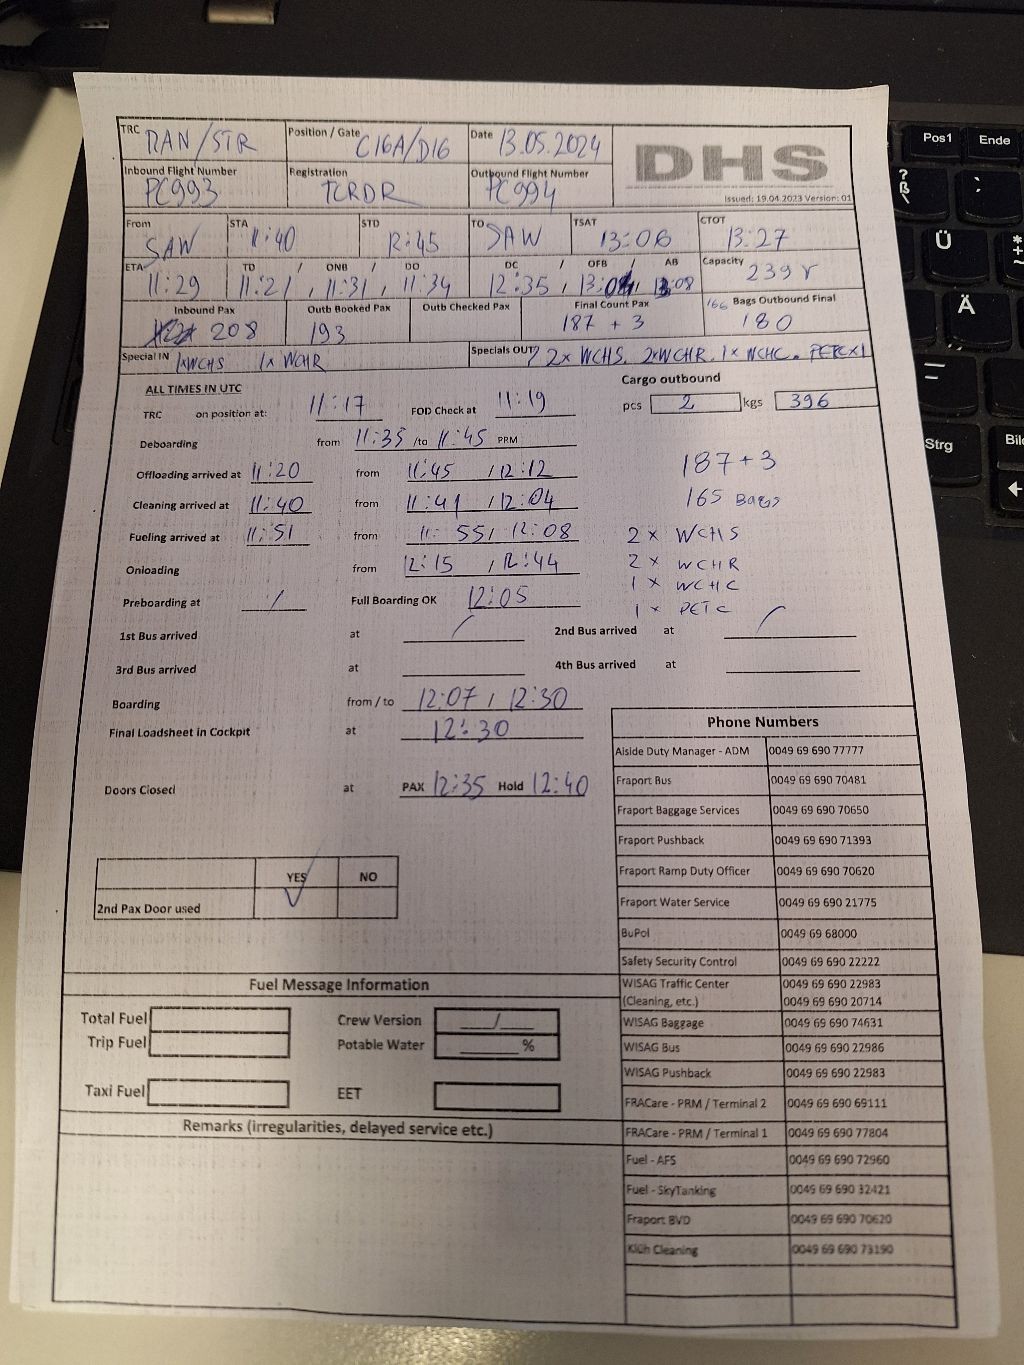 TRC RAN/STR Position / Gate C16A/D16 Date 13.05.2024 DHS
Inbound Flight Number PC993 Registration TCRDR Outbound Flight Number PC994 Issued: 19.04.2023 Version: 01
From SAW STA 11:40 STD 12:45 TO SAW TSAT 13:06 CTOT 13:27
ETA 11:29 TD / ONB / DO 11:21, 11:31, 11:34 DC / OFB / AB 12:35, 13:08 Capacity 239 Y
Inbound Pax 208 Outb Booked Pax 193 Outb Checked Pax Final Count Pax 187 + 3 166 Bags Outbound Final 180
Special IN 1xWCHS 1x WCHR Specials OUT 2x WCHS. 2xWCHR. 1x WCHC. PETCx1
ALL TIMES IN UTC Cargo outbound
TRC on position at: 11:17 FOD Check at 11:19 pcs 2 kgs 396
Deboarding from 11:35 /to 11:45 PRM
Offloading arrived at 11:20 from 11:45 / 12:12 187+3
Cleaning arrived at 11:40 from 11:41 / 12:04 165 Bags
Fueling arrived at 11:51 from 11:55 / 12:08 2 x WCHS
Onloading from 12:15 / 12:44 2 x WCHR
1 x WCHC
Preboarding at / Full Boarding OK 12:05 1 x PETC
1st Bus arrived at / 2nd Bus arrived at /
3rd Bus arrived at 4th Bus arrived at
Boarding from / to 12:07 / 12:30
Final Loadsheet in Cockpit at 12:30
Doors Closed at PAX 12:35 Hold 12:40
YES NO
2nd Pax Door used ✓
Phone Numbers
Aiside Duty Manager - ADM 0049 69 690 77777
Fraport Bus 0049 69 690 70481
Fraport Baggage Services 0049 69 690 70650
Fraport Pushback 0049 69 690 71393
Fraport Ramp Duty Officer 0049 69 690 70620
Fraport Water Service 0049 69 690 21775
BuPol 0049 69 68000
Safety Security Control 0049 69 690 22222
WISAG Traffic Center 0049 69 690 22983
(Cleaning, etc.) 0049 69 690 20714
WISAG Baggage 0049 69 690 74631
WISAG Bus 0049 69 690 22986
WISAG Pushback 0049 69 690 22983
FRACare - PRM / Terminal 2 0049 69 690 69111
FRACare - PRM / Terminal 1 0049 69 690 77804
Fuel - AFS 0049 69 690 72960
Fuel - SkyTanking 0049 69 690 32421
Fraport BVD 0049 69 690 70620
Klüh Cleaning 0049 69 690 73190
Fuel Message Information
Total Fuel Crew Version ___/___
Trip Fuel Potable Water ______%
Taxi Fuel EET
Remarks (irregularities, delayed service etc.)
Pos1
Ende
?
ß
Ü
*
+
~
Ä
Strg
Bil